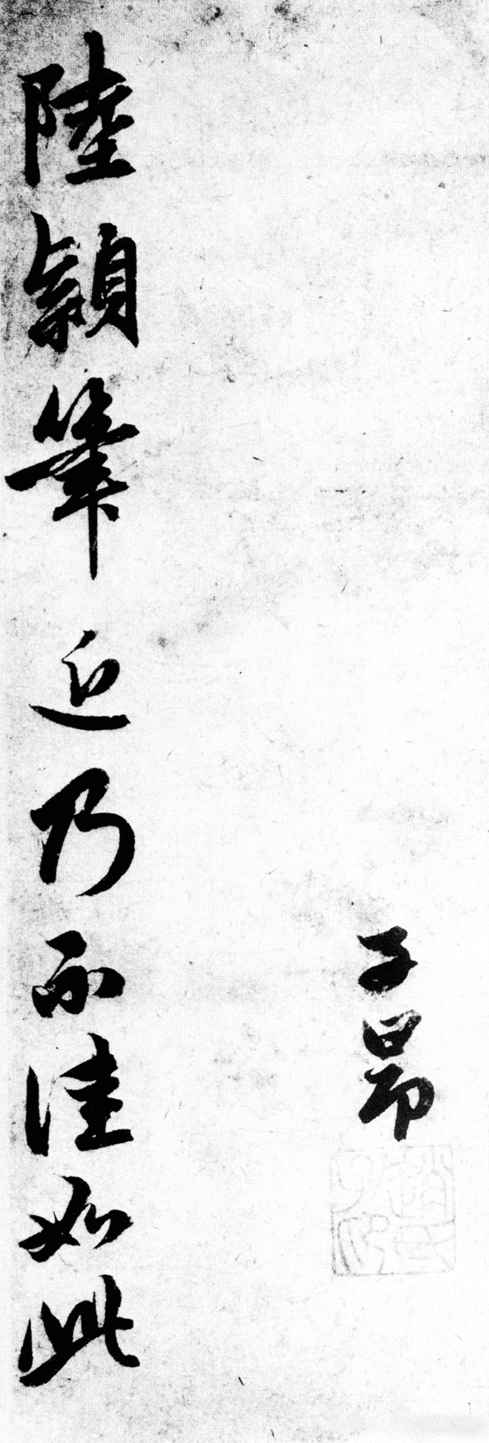 子昂
趙氏子昂
陸穎筆近乃不佳如此